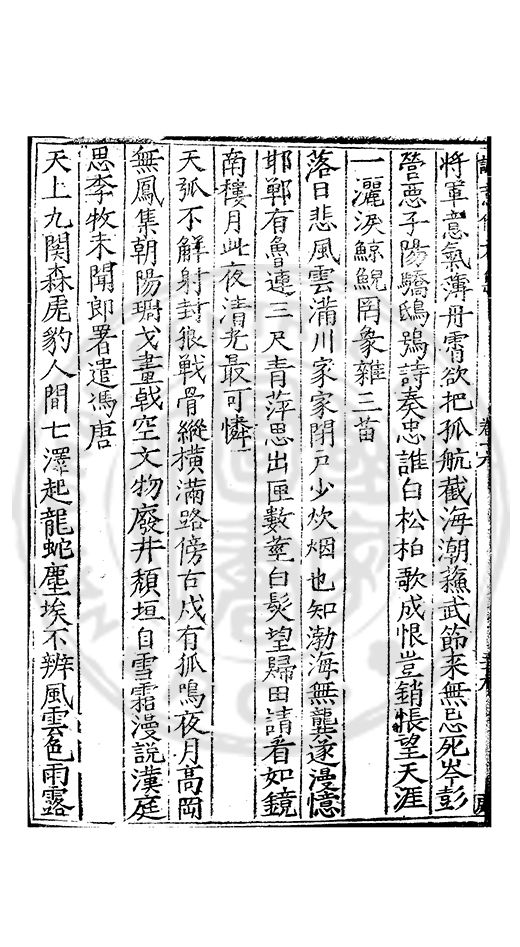 將軍意氣薄丹霄欲把孤航截海潮蘓武節来無忌死岑彭
營惡子陽驕鴟鴞詩奏忠誰白松柏歌成恨豈銷悵望天涯
一灑淚鯨鯢罔象雜三苗
落日悲風雲滿川家家閉戸少炊烟也知渤海無龔遂漫憶
邯鄲有魯連三尺青萍思出匣數莖白髮望歸田請看如鏡
南樓月此夜清光最可憐
天弧不解射封狼戰骨縱橫滿路傍古戍有狐鳴夜月髙岡
無鳳集朝陽琱戈畫戟空文物廢井頹垣自雪霜漫說漢庭
思李牧未聞郎署遣馮唐
天上九関森虎豹人間七澤起龍蛇塵埃不辨風雲色雨露